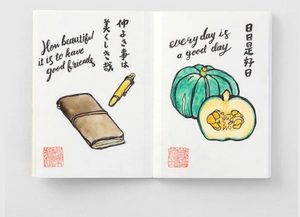 How beautiful
it is to have
good friends
仲よき事は
美しき哉
every day is
a good day
日日是好日